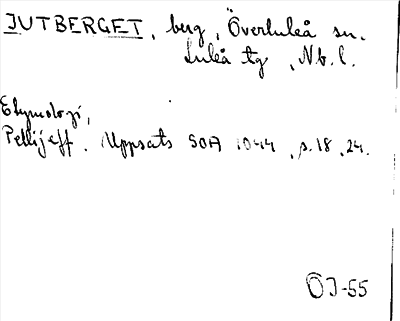 JUTBERGET, berg, Överluleå sn.
Luleå tg, Nb. l.
Etymologi,
Pellijeff. Uppsats SOA 1044, s. 18, 24.
ÖJ-55